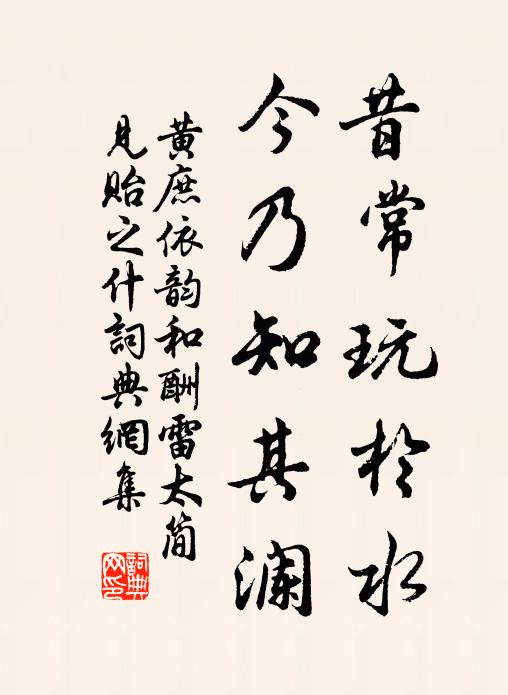 昔常玩於水
今乃知其澜
黄庶依韵和酬雷太简
见贻之什詞典網集
詞典网印